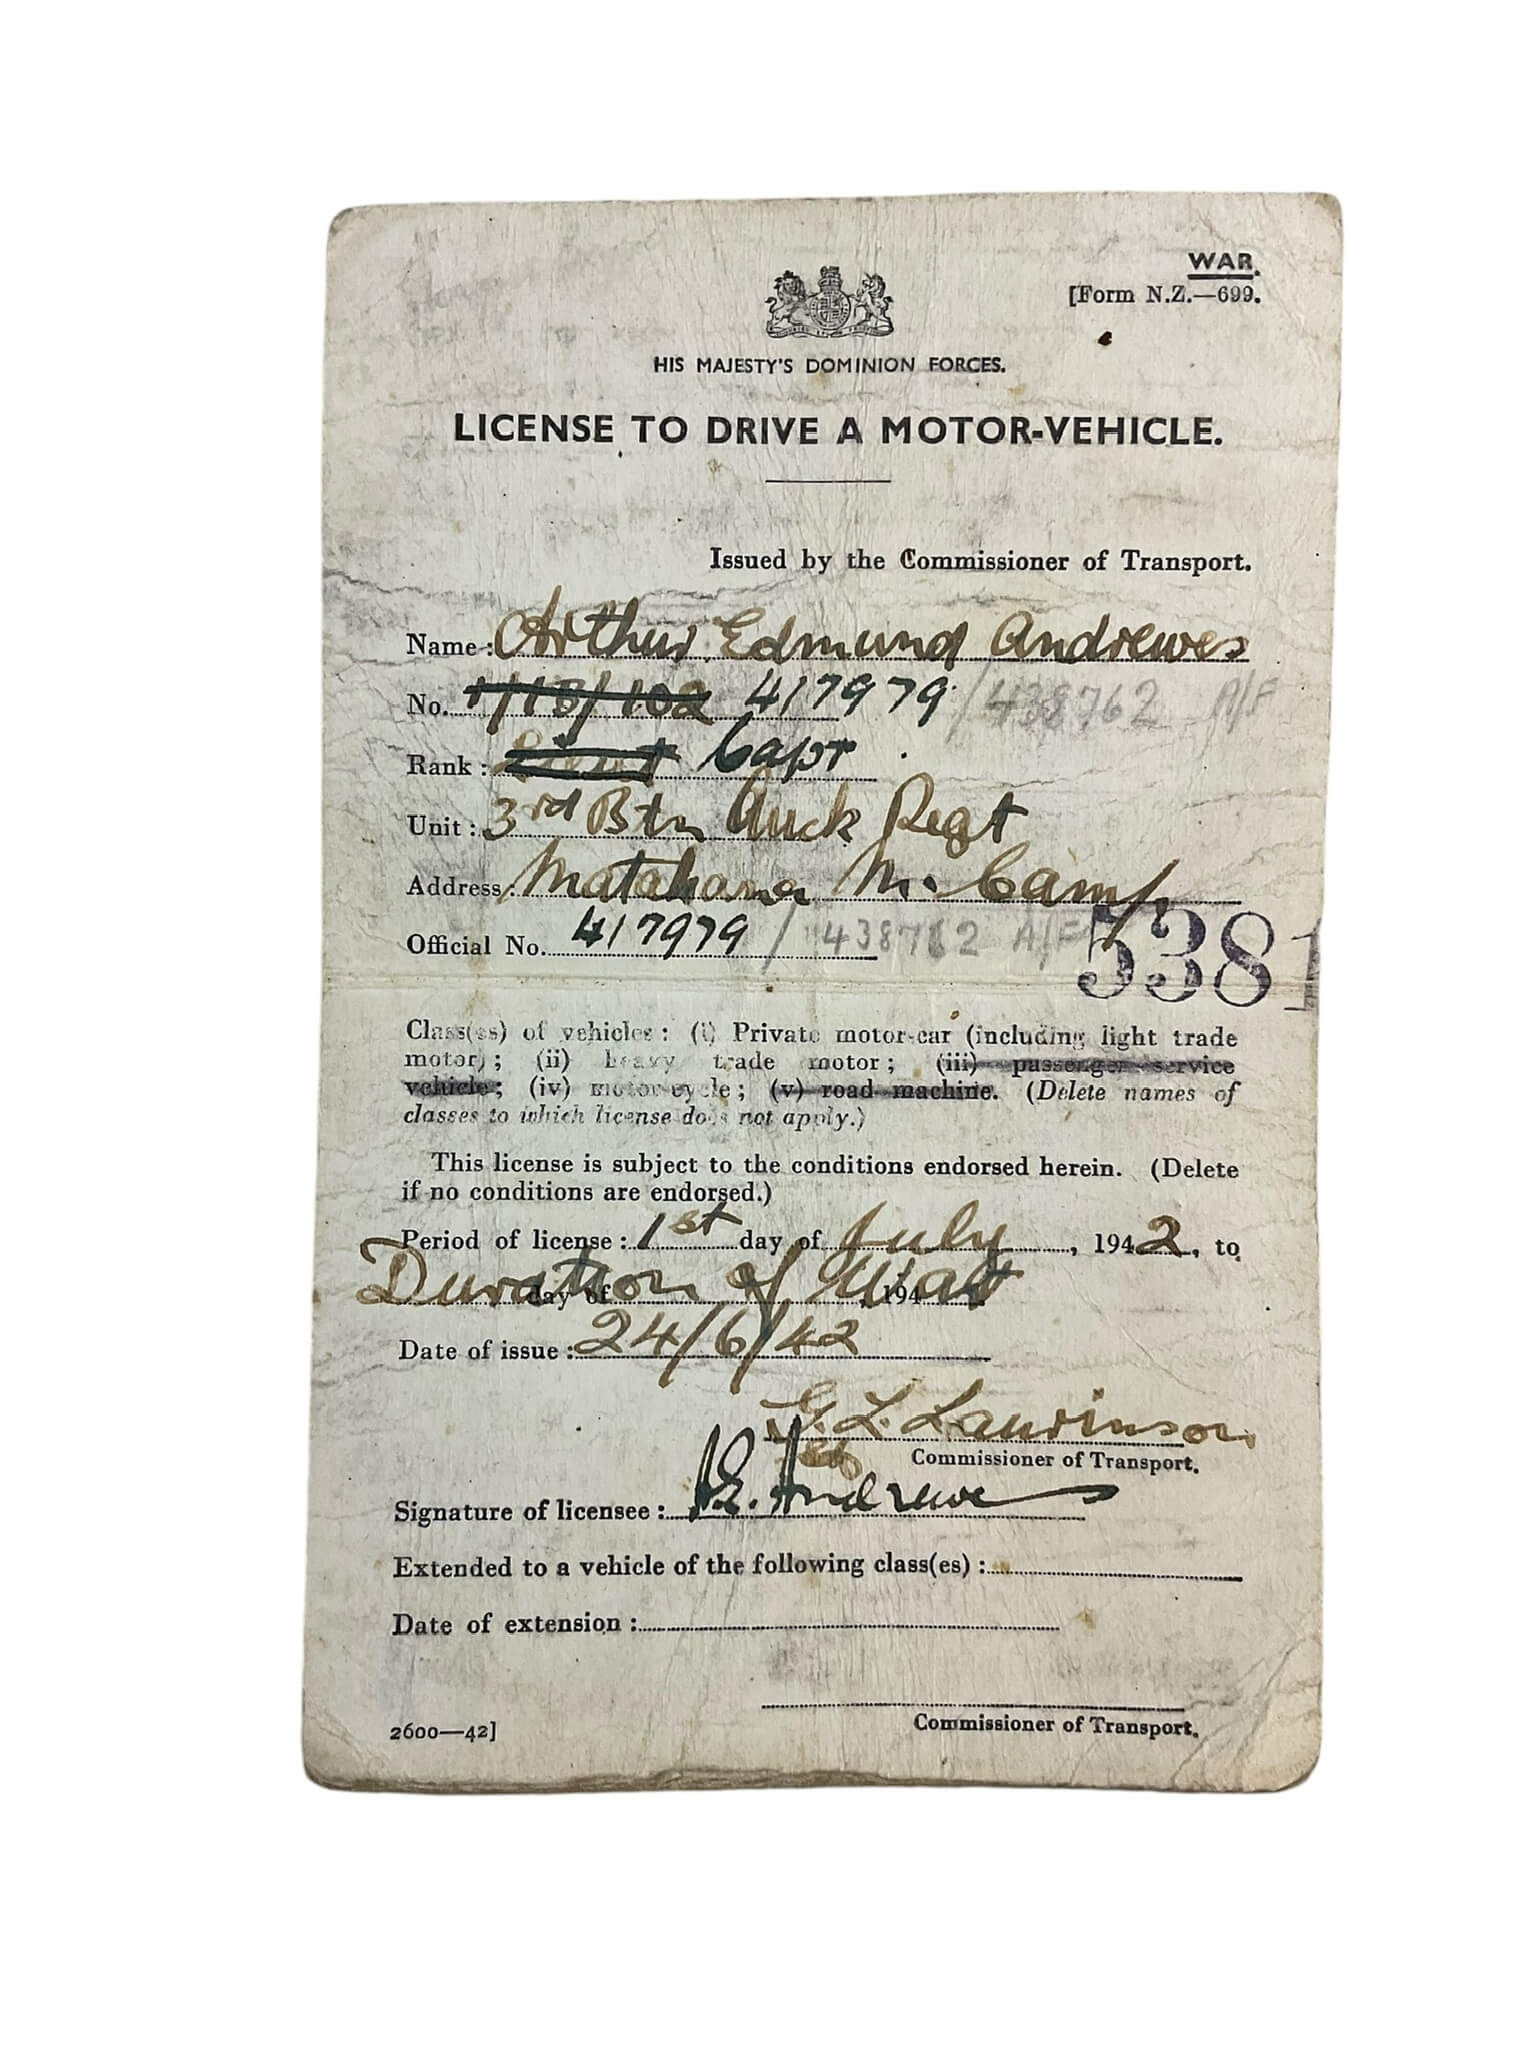 WAR.
[Form N.Z.—699.
HIS MAJESTY'S DOMINION FORCES.
LICENSE TO DRIVE A MOTOR-VEHICLE.
Issued by the Commissioner of Transport.
Name: Arthur Edmund Andrewes
No. 1/1B/102 417979 / 438762 A/F
Rank: Lieut Capt
Unit: 3rd Btn Auck Regt
Address: Matakana M. Camp
Official No. 417979 / 438762 A/F
5381
Class(es) of vehicles: (i) Private motor-car (including light trade
motor); (ii) heavy trade motor; (iii) passenger-service
vehicle; (iv) motor-cycle; (v) road machine. (Delete names of
classes to which license does not apply.)
This license is subject to the conditions endorsed herein. (Delete
if no conditions are endorsed.)
Period of license: 1st day of July, 1942, to
Duration of War day of , 194
Date of issue: 24/6/42
G. L. Laurinson
Commissioner of Transport.
Signature of licensee: A.E. Andrewes
Extended to a vehicle of the following class(es):
Date of extension:
Commissioner of Transport.
2600—42]